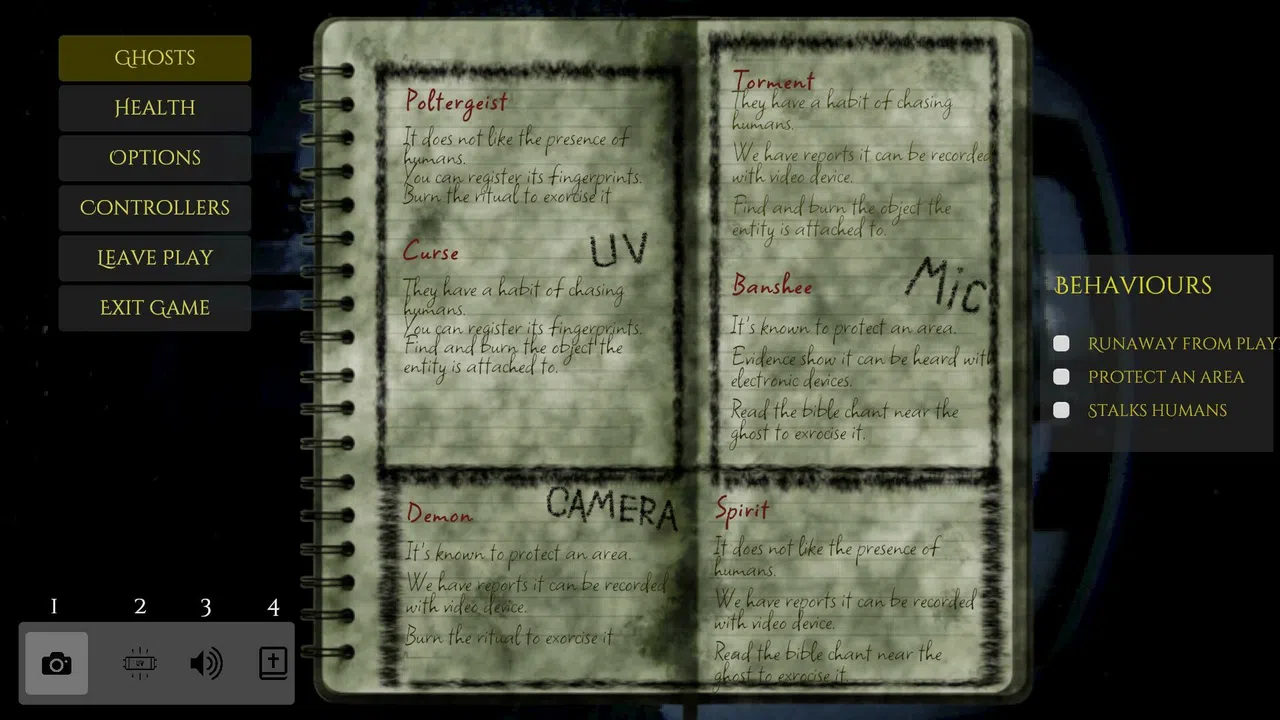 Ghosts
Health
Options
Controllers
Leave play
Exit Game
Poltergeist
It does not like the presence of
humans.
You can register its fingerprints.
Burn the ritual to exorcise it
Curse
UV
They have a habit of chasing
humans.
You can register its fingerprints.
Find and burn the object the
entity is attached to.
Torment
They have a habit of chasing
humans.
We have reports it can be recorded
with video device.
Find and burn the object the
entity is attached to.
Banshee
Mic
It's known to protect an area.
Evidence show it can be heard with
electronic devices.
Read the bible chant near the
ghost to exrocise it.
Demon
CAMERA
It's known to protect an area.
We have reports it can be recorded
with video device.
Burn the ritual to exorcise it
Spirit
It does not like the presence of
humans.
We have reports it can be recorded
with video device.
Read the bible chant near the
ghost to exrocise it.
Behaviours
Runaway from play
Protect an area
Stalks humans
1 2 3 4
UV